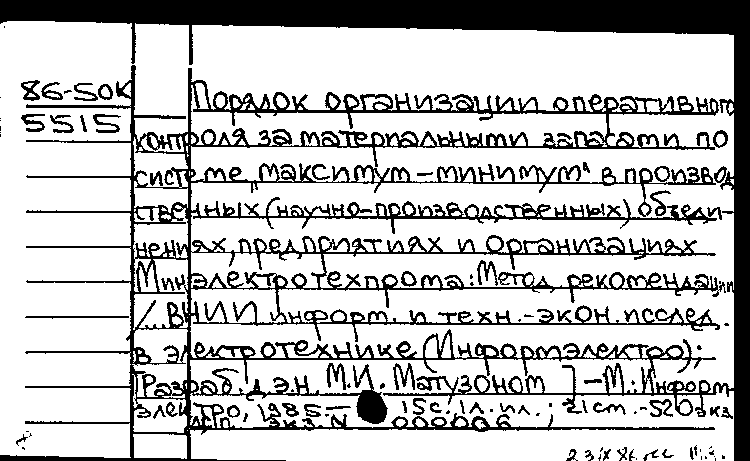 86-50К
5515
Порядок организации оперативного
контроля за материальными запасами по
системе „максимум-минимум“ в производ
ственных (научно-производственных) объеди-
нениях, предприятиях и организациях
Минэлектротехпрома: Метод. рекомендации
/...ВНИИ информ. и техн.-экон. исслед.
в электротехнике (Информэлектро);
[Разраб. д.э.н. М.И. Мапузоном] -М.: Информ-
электро, 1985- 15с. 1л. ил.; 21 cm. -520 экз
ДСП. Экз. N 000006